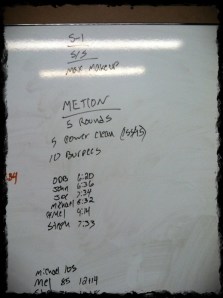 S-1
S/S
MAX MAKEUP
METCON
5 ROUNDS
5 POWER CLEAN (155/95)
10 BURPEES
ODB 6:20
John 6:36
JOE 7:34
Michael 8:32
Steph 7:33
Michael 105
Mel 85 12:14